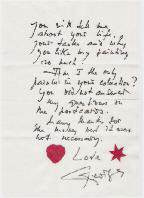 you will tell me
about your life.
your tastes and why
you like my painting
so much?
— Am I the only
painter in your estimation?
You did not answer
my questions on
the postcards.
Many thanks for
the money but it was
not necessary.
Love
Georges